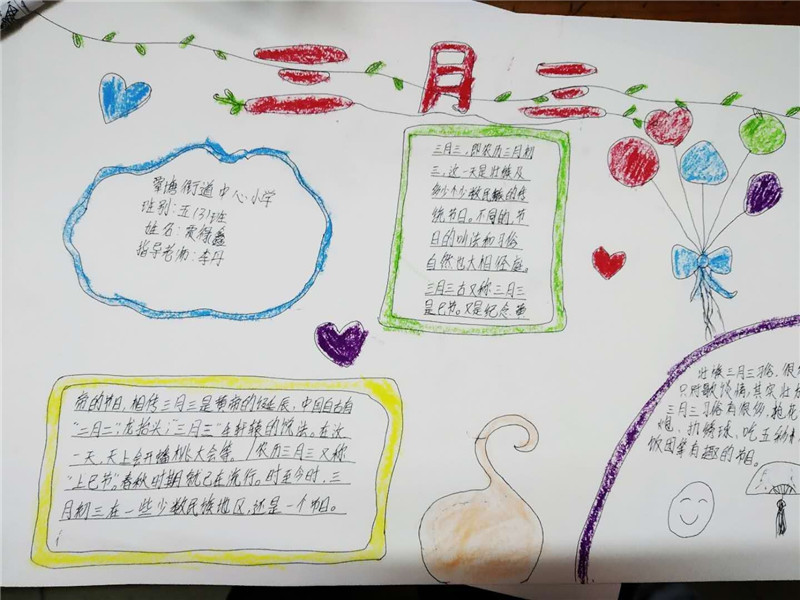 三月三
街道中心小学
班别:五(3)班
姓名:
指导老师:李丹
三月三,即农历三月初
三,这一天是壮族及
多少个少数民族的传
统节日。不同的节
日的叫法和习俗
自然也大相径庭。
三月三古又称三月三
是巳节。又是纪念黄
帝的节日,相传三月三是黄帝的诞辰,中国自古有
"二月二",龙抬头;"三月三"生轩辕的说法。在这
一天,天上会开蟠桃大会等。农历三月三又称
"上巳节"。春秋时期就已在流行。时至今时,三
月初三在一些少数民族地区,还是一个节日。
壮族三月三习俗,很
只对歌谈情,其实壮
三月三习俗有很多,抢花
炮、抛绣球、吃五
饭团等有趣的节日。